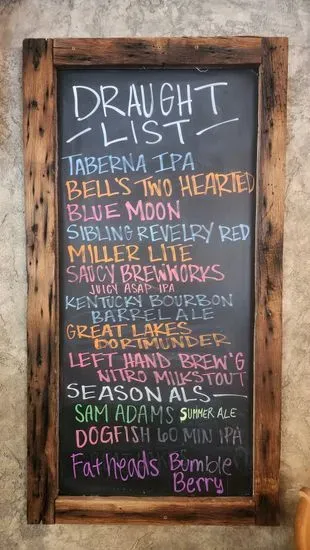 DRAUGHT
- LIST -
TABERNA IPA
BELL'S TWO HEARTED
BLUE MOON
SIBLING REVELRY RED
MILLER LITE
SAUCY BREWWORKS
JUICY ASAP IPA
KENTUCKY BOURBON
BARREL ALE
GREAT LAKES
DORTMUNDER
LEFT HAND BREW'G
NITRO MILKSTOUT
SEASONALS
SAM ADAMS SUMMER ALE
DOGFISH 60 MIN IPA
Fatheads Bumble
Berry